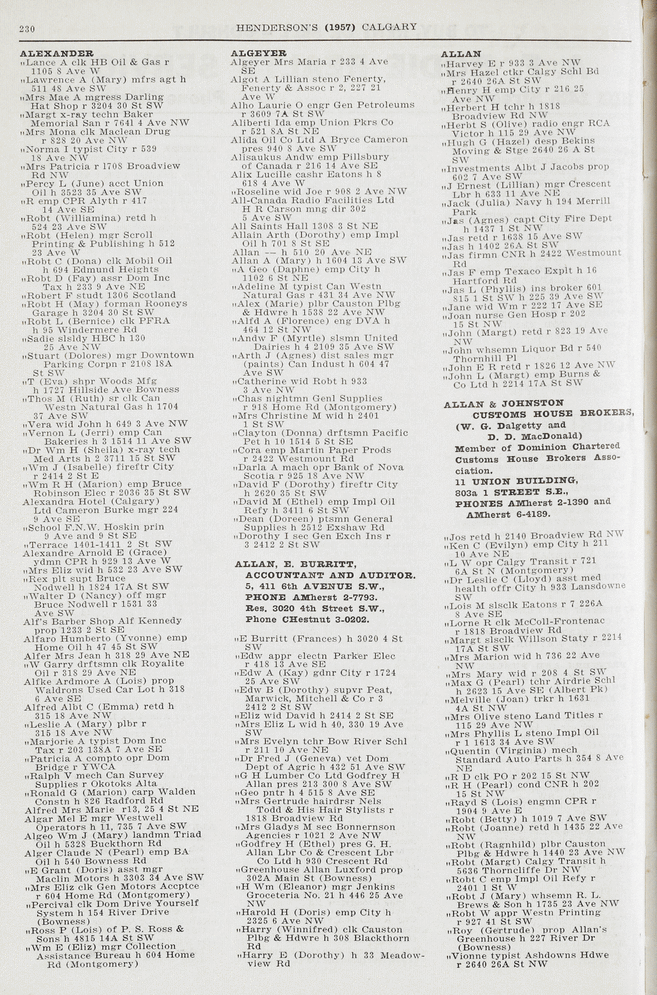 230
HENDERSON'S (1957) CALGARY
ALEXANDER
"Lance A clk HB Oil & Gas r
1105 8 Ave W
"Lawrence A (Mary) mfrs agt h
511 48 Ave SW
"Mrs Mae A mgress Darling
Hat Shop r 3204 30 St SW
"Margt x-ray techn Baker
Memorial San r 7641 4 Ave NW
"Mrs Mona clk Maclean Drug
r 828 20 Ave NW
"Norma I typist City r 539
18 Ave NW
"Mrs Patricia r 1708 Broadview
Rd NW
"Percy L (June) acct Union
Oil h 3523 35 Ave SW
"R emp CPR Alyth r 417
14 Ave SE
"Robt (Williamina) retd h
524 23 Ave SW
"Robt (Helen) mgr Scroll
Printing & Publishing h 512
23 Ave W
"Robt C (Dona) clk Mobil Oil
h 694 Edmund Heights
"Robt D (Fay) assr Dom Inc
Tax h 233 9 Ave NE
"Robert F studt 1306 Scotland
"Robt H (May) forman Rooneys
Garage h 3204 30 St SW
"Robt L (Bernice) clk PFRA
h 95 Windermere Rd
"Sadie slsldy HBC h 130
25 Ave NW
"Stuart (Dolores) mgr Downtown
Parking Corpn r 2108 18A
St SW
"T (Eva) shpr Woods Mfg
h 1727 Hillside Ave Bowness
"Thos M (Ruth) sr clk Can
Westn Natural Gas h 1704
37 Ave SW
"Vera wid John h 649 3 Ave NW
"Vernon L (Jerri) emp Can
Bakeries h 3 1514 11 Ave SW
"Dr Wm H (Sheila) x-ray tech
Med Arts h 2 3711 15 St SW
"Wm J (Isabelle) fireftr City
r 2414 2 St E
"Wm R H (Marion) emp Bruce
Robinson Elec r 2036 35 St SW
Alexandra Hotel (Calgary)
Ltd Cameron Burke mgr 224
9 Ave SE
"School F.N.W. Hoskin prin
9 Ave and 9 St SE
"Terrace 1401-1411 2 St SW
Alexandre Arnold E (Grace)
ydmn CPR h 929 13 Ave W
"Mrs Eliz wid h 532 23 Ave SW
"Rex plt supt Bruce
Nodwell h 1824 17A St SW
"Walter D (Nancy) off mgr
Bruce Nodwell r 1531 33
Ave SW
Alf's Barber Shop Alf Kennedy
prop 1233 2 St SE
Alfaro Humberto (Yvonne) emp
Home Oil h 47 45 St SW
Alfer Mrs Jean h 318 29 Ave NE
"W Garry drftsmn clk Royalite
Oil r 318 29 Ave NE
Alfke Ardmore A (Lois) prop
Waldrons Used Car Lot h 318
6 Ave SE
Alfred Albt C (Emma) retd h
315 18 Ave NW
"Leslie A (Mary) plbr r
315 18 Ave NW
"Marjorie A typist Dom Inc
Tax r 203 138A 7 Ave SE
"Patricia A compto opr Dom
Bridge r YWCA
"Ralph V mech Can Survey
Supplies r Okotoks Alta
"Ronald G (Marion) carp Walden
Constn h 826 Radford Rd
Alfred Mrs Marie r13, 25 4 St NE
Algar Mel E mgr Westwell
Operators h 11, 735 7 Ave SW
Algeo Wm J (Mary) landmn Triad
Oil h 5328 Buckthorn Rd
Alger Claude N (Pearl) emp BA
Oil h 540 Bowness Rd
"E Grant (Doris) asst mgr
Maclin Motors h 3303 34 Ave SW
"Mrs Eliz clk Gen Motors Accptce
r 604 Home Rd (Montgomery)
"Percival clk Dom Drive Yourself
System h 154 River Drive
(Bowness)
"Ross P (Lois) of P. S. Ross &
Sons h 4815 14A St SW
"Wm E (Eliz) mgr Collection
Assistance Bureau h 604 Home
Rd (Montgomery)
ALGEYER
Algeyer Mrs Maria r 233 4 Ave
SE
Algot A Lillian steno Fenerty,
Fenerty & Assoc r 2, 227 21
Ave W
Alho Laurie O engr Gen Petroleums
r 3609 7A St SW
Aliberti Ida emp Union Pkrs Co
r 521 8A St NE
Alida Oil Co Ltd A Bryce Cameron
pres 940 8 Ave SW
Alisaukus Andw emp Pillsbury
of Canada r 216 14 Ave SE
Alix Lucille cashr Eatons h 8
618 4 Ave W
"Roseline wid Joe r 908 2 Ave NW
All-Canada Radio Facilities Ltd
H R Carson mng dir 302
5 Ave SW
All Saints Hall 1308 3 St NE
Allain Arth (Dorothy) emp Impl
Oil h 701 8 St SE
Allan — h 510 20 Ave NE
Allan A (Mary) h 1604 13 Ave SW
"A Geo (Daphne) emp City h
1102 6 St NE
"Adeline M typist Can Westn
Natural Gas r 431 34 Ave NW
"Alex (Marie) plbr Causton Plbg
& Hdwre h 1538 22 Ave NW
"Alfd A (Florence) eng DVA h
464 12 St NW
"Andw F (Myrtle) slsmn United
Dairies h 4 2109 35 Ave SW
"Arth J (Agnes) dist sales mgr
(paints) Can Indust h 604 47
Ave SW
"Catherine wid Robt h 933
3 Ave NW
"Chas nightmn Genl Supplies
r 918 Home Rd (Montgomery)
"Mrs Christine M wid h 2401
1 St SW
"Clayton (Donna) drftsmn Pacific
Pet h 10 1514 5 St SE
"Cora emp Martin Paper Prods
r 2422 Westmount Rd
"Darla A mach opr Bank of Nova
Scotia r 925 18 Ave NW
"David F (Dorothy) fireftr City
h 2620 35 St SW
"David M (Ethel) emp Impl Oil
Refy h 3411 6 St SW
"Dean (Doreen) ptsmn General
Supplies h 2512 Exshaw Rd
"Dorothy I sec Gen Exch Ins r
3 2412 2 St SW
ALLAN, E. BURRITT,
ACCOUNTANT AND AUDITOR.
5, 411 6th AVENUE S.W.,
PHONE AMherst 2-7793.
Res, 3020 4th Street S.W.,
Phone CHestnut 3-0202.
"E Burritt (Frances) h 3020 4 St
SW
"Edw appr electn Parker Elec
r 418 13 Ave SE
"Edw A (Kay) gdnr City r 1724
25 Ave SW
"Edw B (Dorothy) supvr Peat,
Marwick, Mitchell & Co r 3
2412 2 St SW
"Eliz wid David h 2414 2 St SE
"Mrs Eliz L wid h 40, 330 19 Ave
SW
"Mrs Evelyn tchr Bow River Schl
r 211 10 Ave NE
"Dr Fred J (Geneva) vet Dom
Dept of Agric h 432 51 Ave SW
"G H Lumber Co Ltd Godfrey H
Allan pres 213 300 8 Ave SW
"Geo pntr h 4 515 8 Ave SE
"Mrs Gertrude hairdrsr Nels
Todd & His Hair Stylists r
1818 Broadview Rd
"Mrs Gladys M sec Bonnerson
Agencies r 1021 2 Ave NW
"Godfrey H (Ethel) pres G. H.
Allan Lbr Co & Crescent Lbr
Co Ltd h 930 Crescent Rd
"Greenhouse Allan Luxford prop
302A Main St (Bowness)
"H Wm (Eleanor) mgr Jenkins
Groceteria No. 21 h 446 25 Ave
NW
"Harold H (Doris) emp City h
2325 6 Ave NW
"Harry (Winnifred) clk Causton
Plbg & Hdwre h 308 Blackthorn
Rd
"Harry E (Dorothy) h 33 Meadow-
view Rd
ALLAN
"Harvey E r 933 3 Ave NW
"Mrs Hazel ctkr Calgy Schl Bd
r 2640 26A St SW
"Henry H emp City r 216 25
Ave NW
"Herbert H tchr h 1818
Broadview Rd NW
"Herbt S (Olive) radio engr RCA
Victor h 115 29 Ave NW
"Hugh G (Hazel) desp Bekins
Moving & Stge 2640 26 A St
SW
"Investments Albt J Jacobs prop
602 7 Ave SW
"J Ernest (Lillian) mgr Crescent
Lbr h 633 11 Ave NE
"Jack (Julia) Navy h 194 Merrill
Park
"Jas (Agnes) capt City Fire Dept
h 1437 1 St NW
"Jas retd r 1638 15 Ave SW
"Jas h 1402 26A St SW
"Jas firmn CNR h 2422 Westmount
Rd
"Jas F emp Texaco Explt h 16
Hartford Rd
"Jas L (Phyllis) ins broker 601
815 1 St SW h 225 39 Ave SW
"Jane wid Wm r 222 17 Ave SE
"Joan nurse Gen Hosp r 202
15 St NW
"John (Margt) retd r 823 19 Ave
NW
"John whsemn Liquor Bd r 540
Thornhill Pl
"John E R retd r 1826 12 Ave NW
"John L (Margt) emp Burns &
Co Ltd h 2214 17A St SW
ALLAN & JOHNSTON
CUSTOMS HOUSE BROKERS,
(W. G. Dalgetty and
D. D. MacDonald)
Member of Dominion Chartered
Customs House Brokers Asso-
ciation.
11 UNION BUILDING,
803a 1 STREET S.E.,
PHONES AMherst 2-1390 and
AMherst 6-4189.
"Jos retd h 2140 Broadview Rd NW
"Ken C (Evilyn) emp City h 211
10 Ave NE
"L W opr Calgy Transit r 721
6A St N (Montgomery)
"Dr Leslie C (Lloyd) asst med
health offr City h 933 Lansdowne
SW
"Lois M slsclk Eatons r 7 226A
8 Ave SE
"Lorne R clk McColl-Frontenac
r 1818 Broadview Rd
"Margt slsclk Willson Staty r 2214
17A St SW
"Mrs Marion wid h 736 22 Ave
NW
"Mrs Mary wid r 208 4 St SW
"Max G (Pearl) tchr Airdrie Schl
h 2623 15 Ave SE (Albert Pk)
"Melville (Joan) trkr h 1631
4A St NW
"Mrs Olive steno Land Titles r
115 29 Ave NW
"Mrs Phyllis L steno Impl Oil
r 1 1613 34 Ave SW
"Quentin (Virginia) mech
Standard Auto Parts h 354 8 Ave
NE
"R D clk PO r 202 15 St NW
"R H (Pearl) cond CNR h 202
15 St NW
"Rayd S (Lois) engmn CPR r
1904 9 Ave E
"Robt (Betty) h 1019 7 Ave SW
"Robt (Joanne) retd h 1435 22 Ave
NW
"Robt (Ragnhild) plbr Causton
Plbg & Hdwre h 1440 23 Ave NW
"Robt (Margt) Calgy Transit h
5636 Thorncliffe Dr NW
"Robt C emp Impl Oil Refy r
2401 1 St W
"Robt J (Mary) whsemn R. L.
Brews & Son h 1735 23 Ave NW
"Robt W appr Westn Printing
r 927 41 St SW
"Roy (Gertrude) prop Allan's
Greenhouse h 227 River Dr
(Bowness)
"Vionne typist Ashdowns Hdwe
r 2640 26A St NW